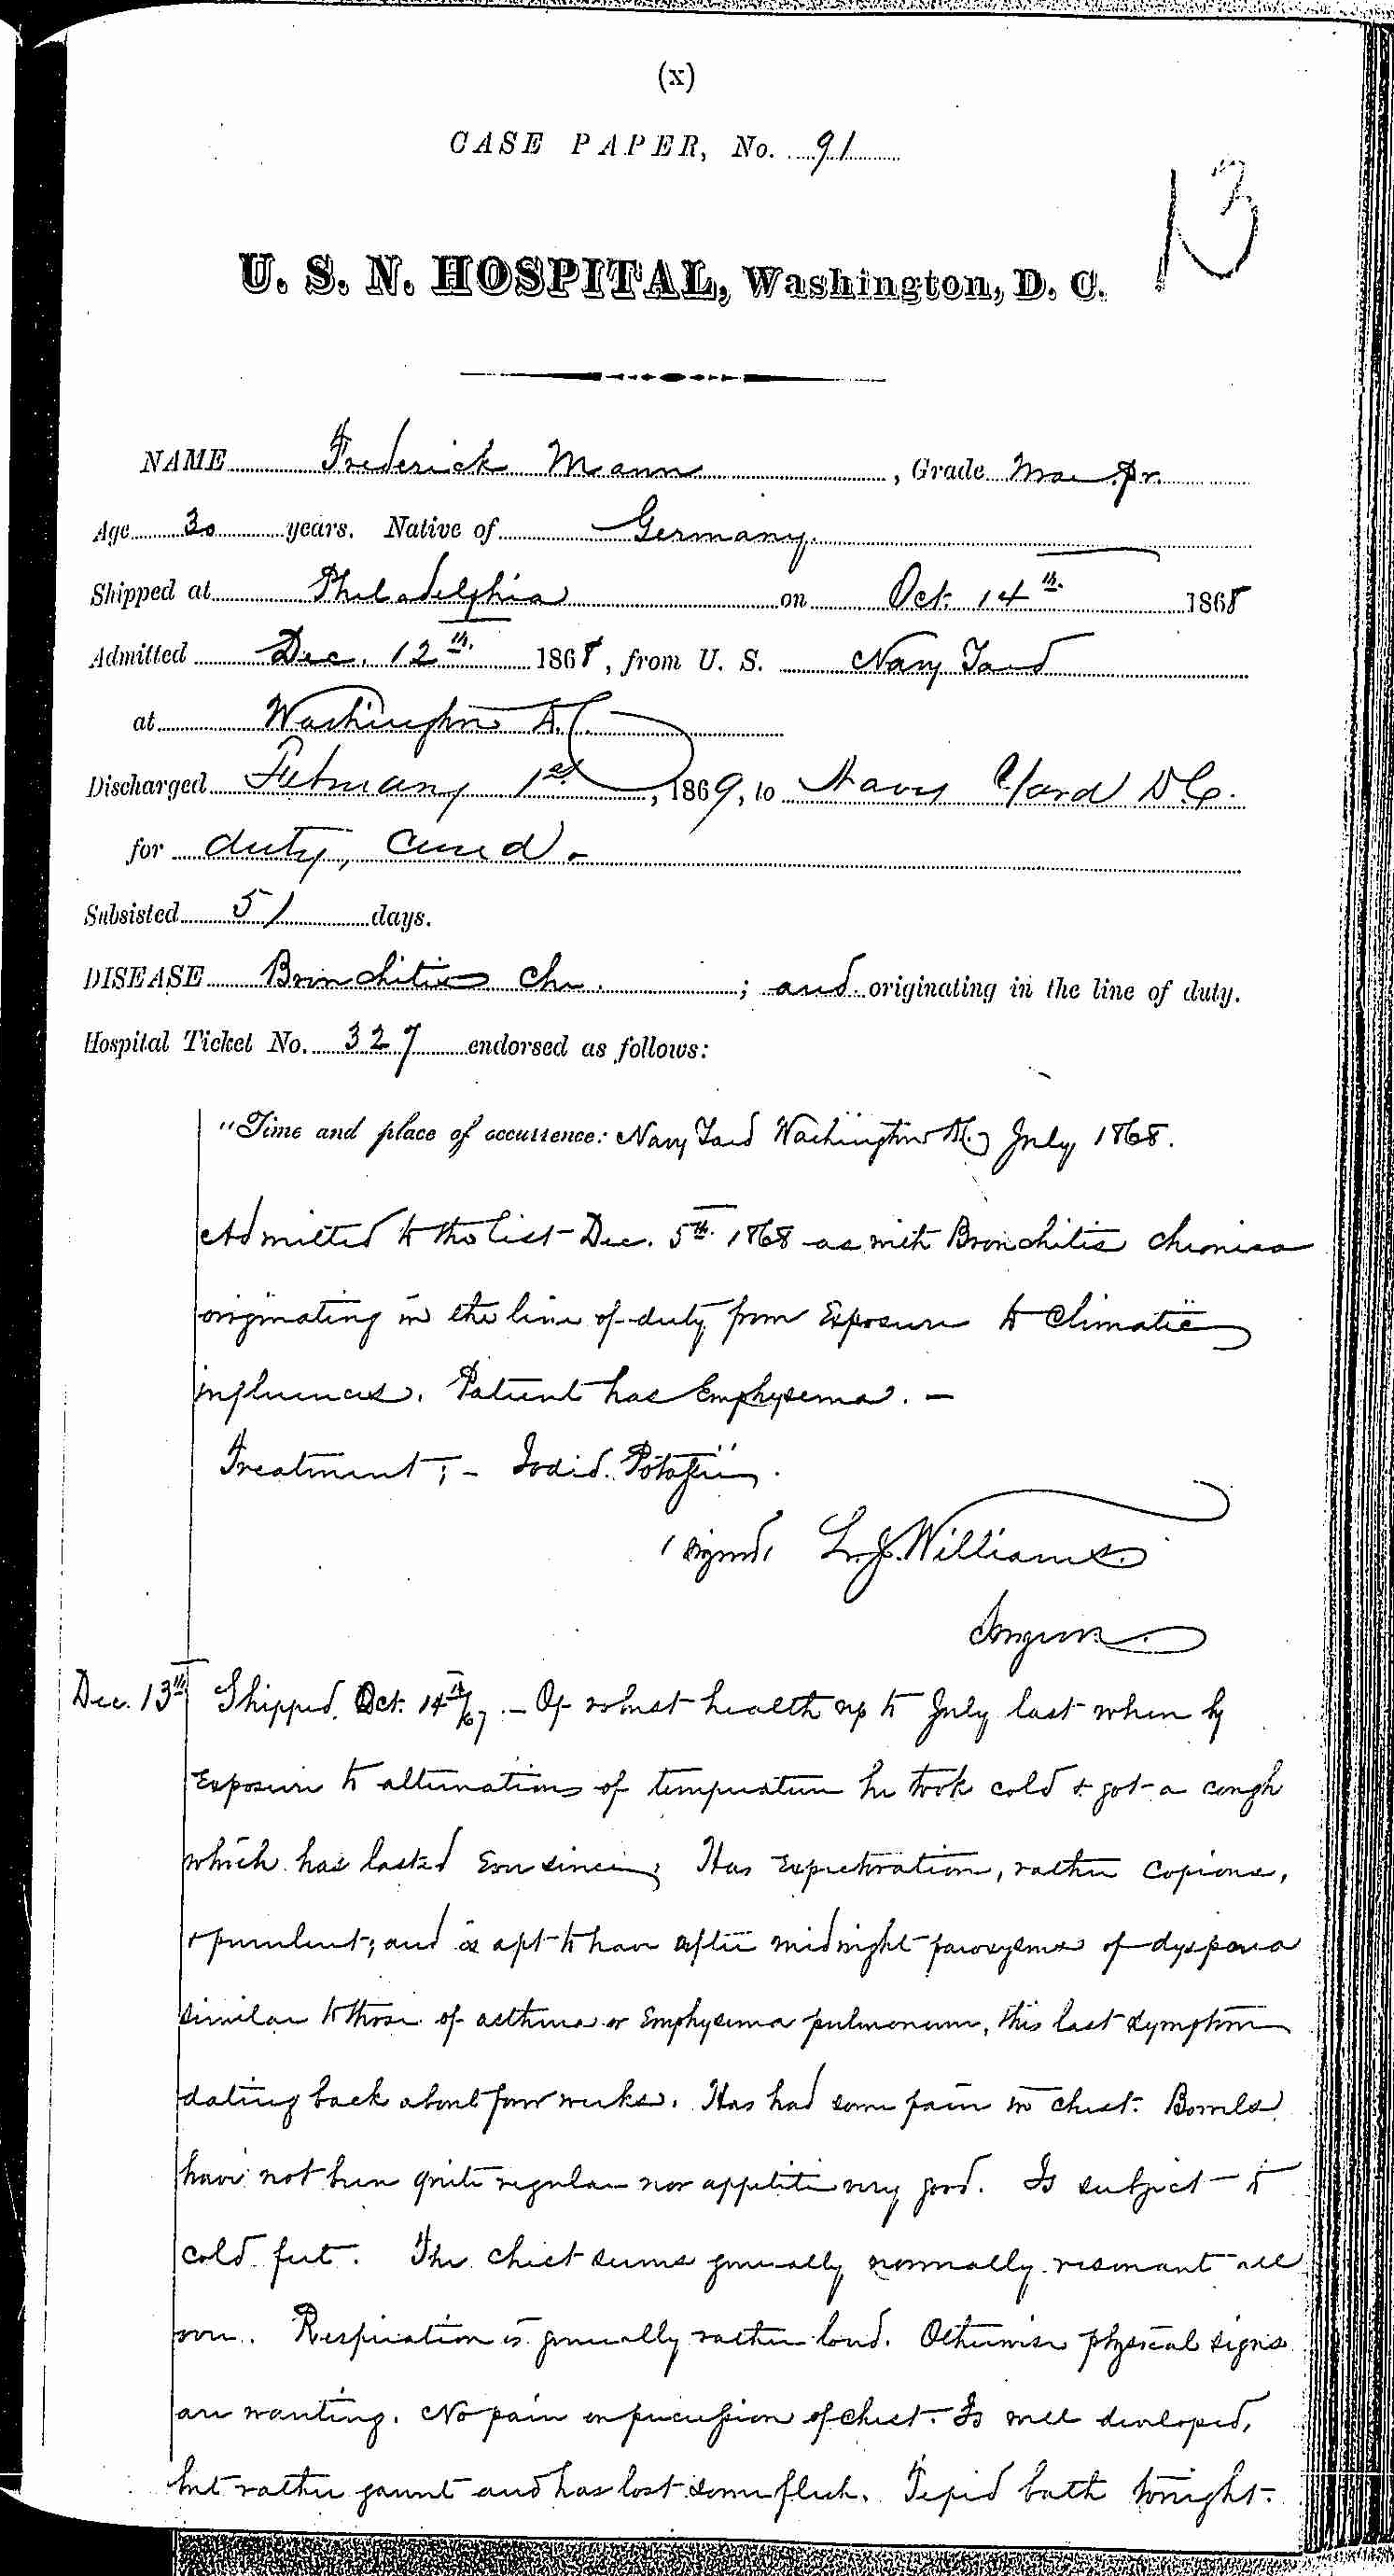 (x)
CASE PAPER, No. 91
13
U. S. N. HOSPITAL, Washington, D. C.
NAME Frederick Mann, Grade Mar. Pr.
Age 30 years. Native of Germany.
Shipped at Philadelphia on Oct. 14th. 1868
Admitted Dec. 12th. 1868, from U. S. Navy Yard
at Washington D.C.
Discharged February 1st, 1869, to Navy Yard D.C.
for duty, cured.-
Subsisted 51 days.
DISEASE Bronchitis Chr.; and originating in the line of duty.
Hospital Ticket No. 327 endorsed as follows:
"Time and place of occurrence: Navy Yard Washington D.C. July 1868.
Admitted to the list Dec. 5th. 1868 as with Bronchitis chronica
originating in the line of duty from Exposure to Climatic
influences. Patient has Emphysema. -
Treatment; - Iodid. Potassii".
(signed) L. J. Williams.
Surgeon.
Dec. 13th Shipped Oct. 14th/67. - Of robust health up to July last when by
Exposure to alternations of temperature he took cold & got a cough
which has lasted Ever since; Has expectoration, rather copious,
& purulent; and is apt to have after midnight paroxysms of dyspnoea
similar to those of asthma or Emphysema pulmonum, this last symptom
dating back about four weeks. Has had some pain in chest. Bowels
have not been quite regular nor appetite very good. Is subject to
cold feet. The chest seems generally normally resonant all
over. Respiration is generally rather loud. Otherwise physical signs
are wanting. No pain on percussion of chest. Is well developed,
but rather gaunt and has lost some flesh. Tepid bath tonight.